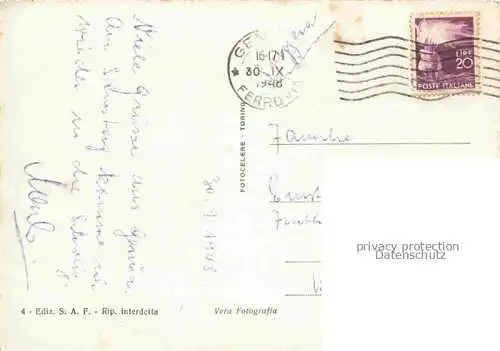 Viele Grüsse aus Genua.
Am Samstag komme ich
wieder in die Schweiz.
30.9.1948
GEN
16-17
30. IX
1948
FERROVIA
LIRE
20
POSTE ITALIANE
FOTOCELERE - TORINO
Familie
Ernst
privacy protection
Datenschutz
4 - Ediz. S. A. F. - Rip. interdetta
Vera Fotografia